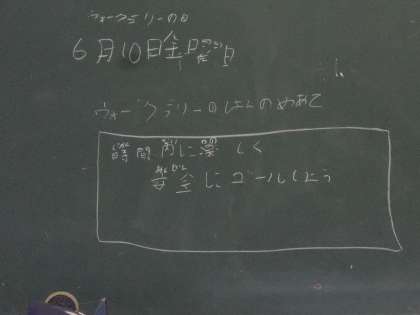 ウォークラリーの日
6月10日金曜日
ウォークラリーのはんのめあて
時間内に楽しく
安全にゴールしよう